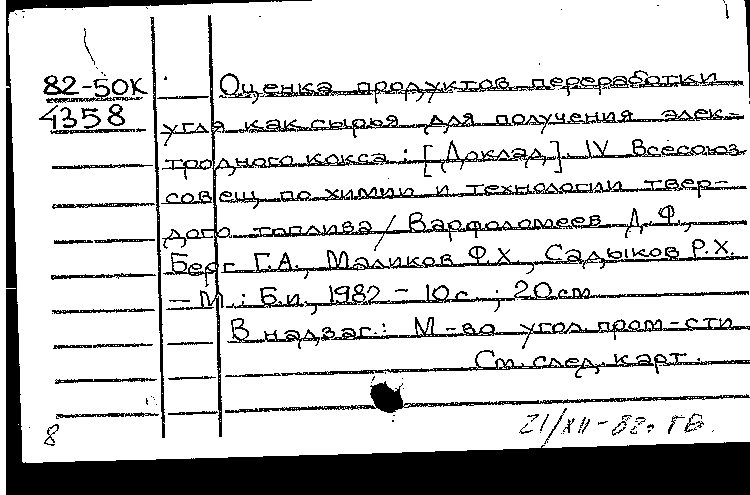 82-50К Оценка продуктов переработки
4358 угля как сырья для получения элек-
тродного кокса : [Доклад]. IV Всесоюз.
совещ. по химии и технологии твер-
дого топлива / Варфоломеев Д.Ф.,
Берг Г.А., Маликов Ф.Х., Садыков Р.Х.
– М. : Б.и., 1982 – 10 с. ; 20 см
В надзаг.: М-во угол. пром-сти
См. след. карт.
8 21/XII-82г. ГВ.